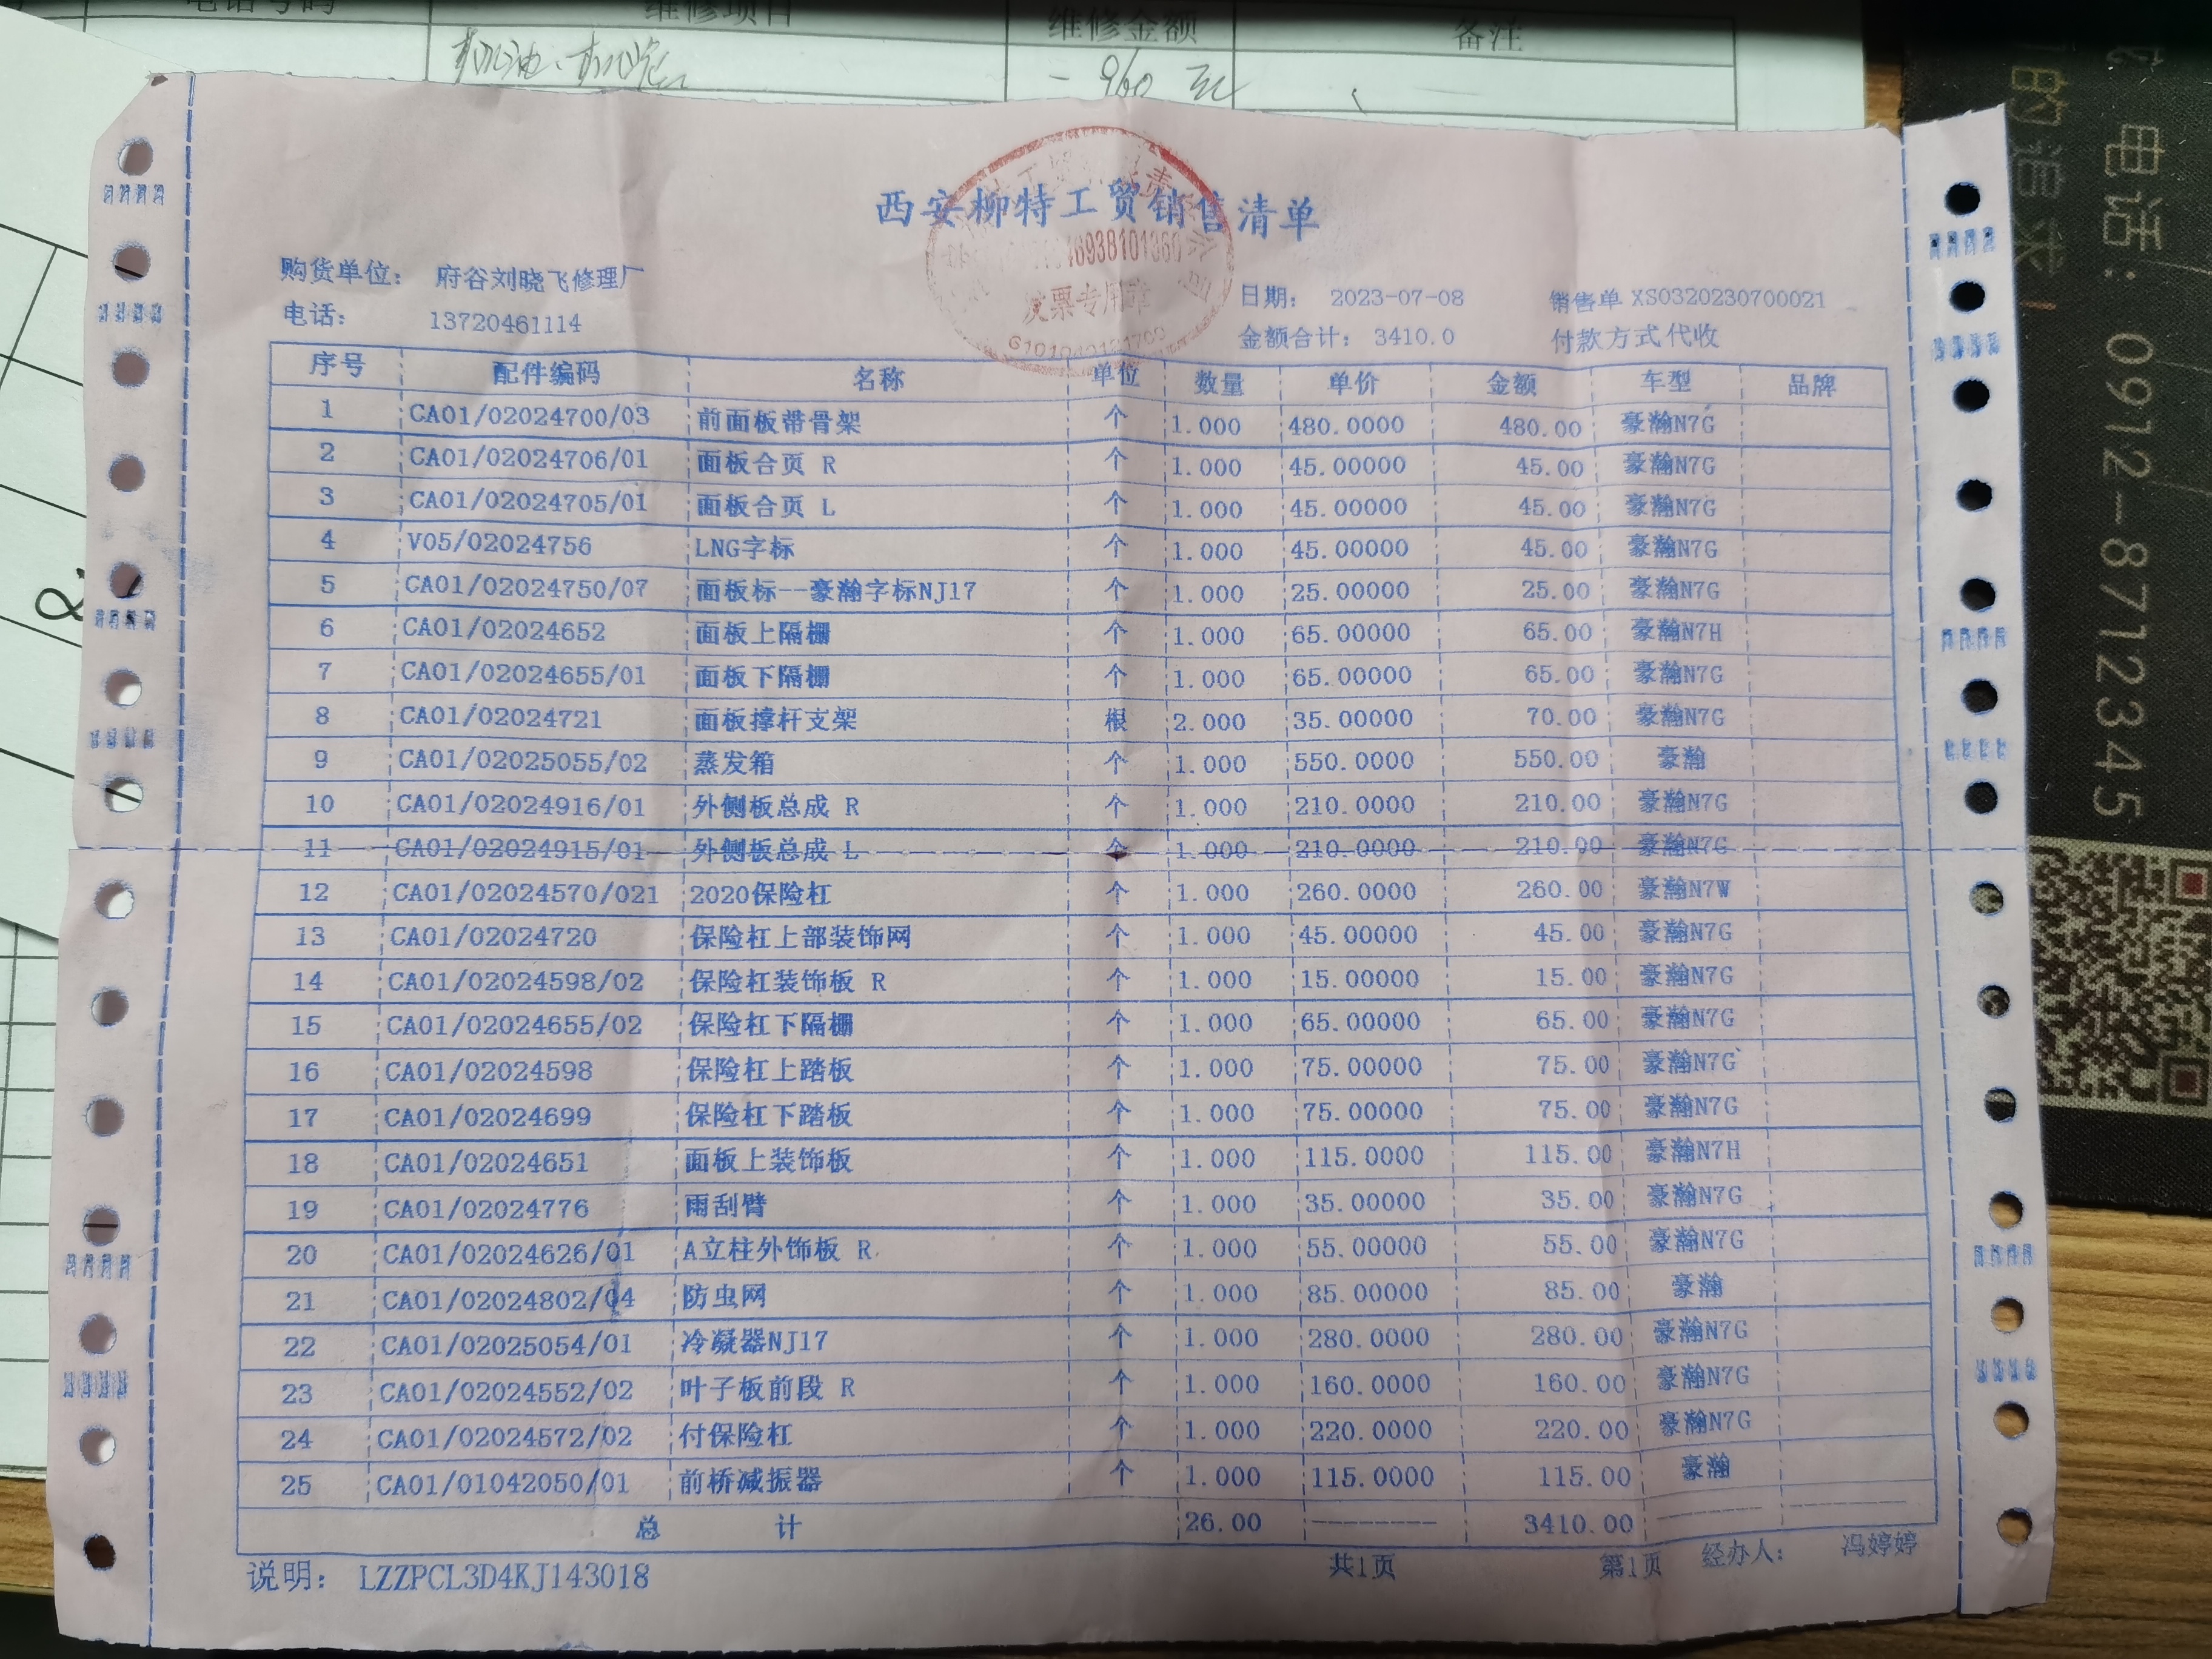 电话号码 维修项目 维修金额 备注
960元
西安柳特工贸销售清单
发票专用章
购货单位： 府谷刘晓飞修理厂 日期： 2023-07-08 销售单 XS0320230700021
电话： 13720461114 金额合计： 3410.0 付款方式 代收
序号 配件编码 名称 单位 数量 单价 金额 车型 品牌
1 CA01/02024700/03 前面板带骨架 个 1.000 480.0000 480.00 豪瀚N7G
2 CA01/02024706/01 面板合页 R 个 1.000 45.00000 45.00 豪瀚N7G
3 CA01/02024705/01 面板合页 L 个 1.000 45.00000 45.00 豪瀚N7G
4 V05/02024756 LNG字标 个 1.000 45.00000 45.00 豪瀚N7G
5 CA01/02024750/07 面板标--豪瀚字标NJ17 个 1.000 25.00000 25.00 豪瀚N7G
6 CA01/02024652 面板上隔栅 个 1.000 65.00000 65.00 豪瀚N7H
7 CA01/02024655/01 面板下隔栅 个 1.000 65.00000 65.00 豪瀚N7G
8 CA01/02024721 面板撑杆支架 根 2.000 35.00000 70.00 豪瀚N7G
9 CA01/02025055/02 蒸发箱 个 1.000 550.0000 550.00 豪瀚
10 CA01/02024916/01 外侧板总成 R 个 1.000 210.0000 210.00 豪瀚N7G
11 CA01/02024915/01 外侧板总成 L 个 1.000 210.0000 210.00 豪瀚N7G
12 CA01/02024570/021 2020保险杠 个 1.000 260.0000 260.00 豪瀚N7W
13 CA01/02024720 保险杠上部装饰网 个 1.000 45.00000 45.00 豪瀚N7G
14 CA01/02024598/02 保险杠装饰板 R 个 1.000 15.00000 15.00 豪瀚N7G
15 CA01/02024655/02 保险杠下隔栅 个 1.000 65.00000 65.00 豪瀚N7G
16 CA01/02024598 保险杠上踏板 个 1.000 75.00000 75.00 豪瀚N7G
17 CA01/02024699 保险杠下踏板 个 1.000 75.00000 75.00 豪瀚N7G
18 CA01/02024651 面板上装饰板 个 1.000 115.0000 115.00 豪瀚N7H
19 CA01/02024776 雨刮臂 个 1.000 35.00000 35.00 豪瀚N7G
20 CA01/02024626/01 A立柱外饰板 R 个 1.000 55.00000 55.00 豪瀚N7G
21 CA01/02024802/04 防虫网 个 1.000 85.00000 85.00 豪瀚
22 CA01/02025054/01 冷凝器NJ17 个 1.000 280.0000 280.00 豪瀚N7G
23 CA01/02024552/02 叶子板前段 R 个 1.000 160.0000 160.00 豪瀚N7G
24 CA01/02024572/02 付保险杠 个 1.000 220.0000 220.00 豪瀚N7G
25 CA01/01042050/01 前桥减振器 个 1.000 115.0000 115.00 豪瀚
总 计 26.00 -------- 3410.00
说明： LZZPCL3D4KJ143018 共1页 第1页 经办人： 冯婷婷
电话：0912-8712345
的追求